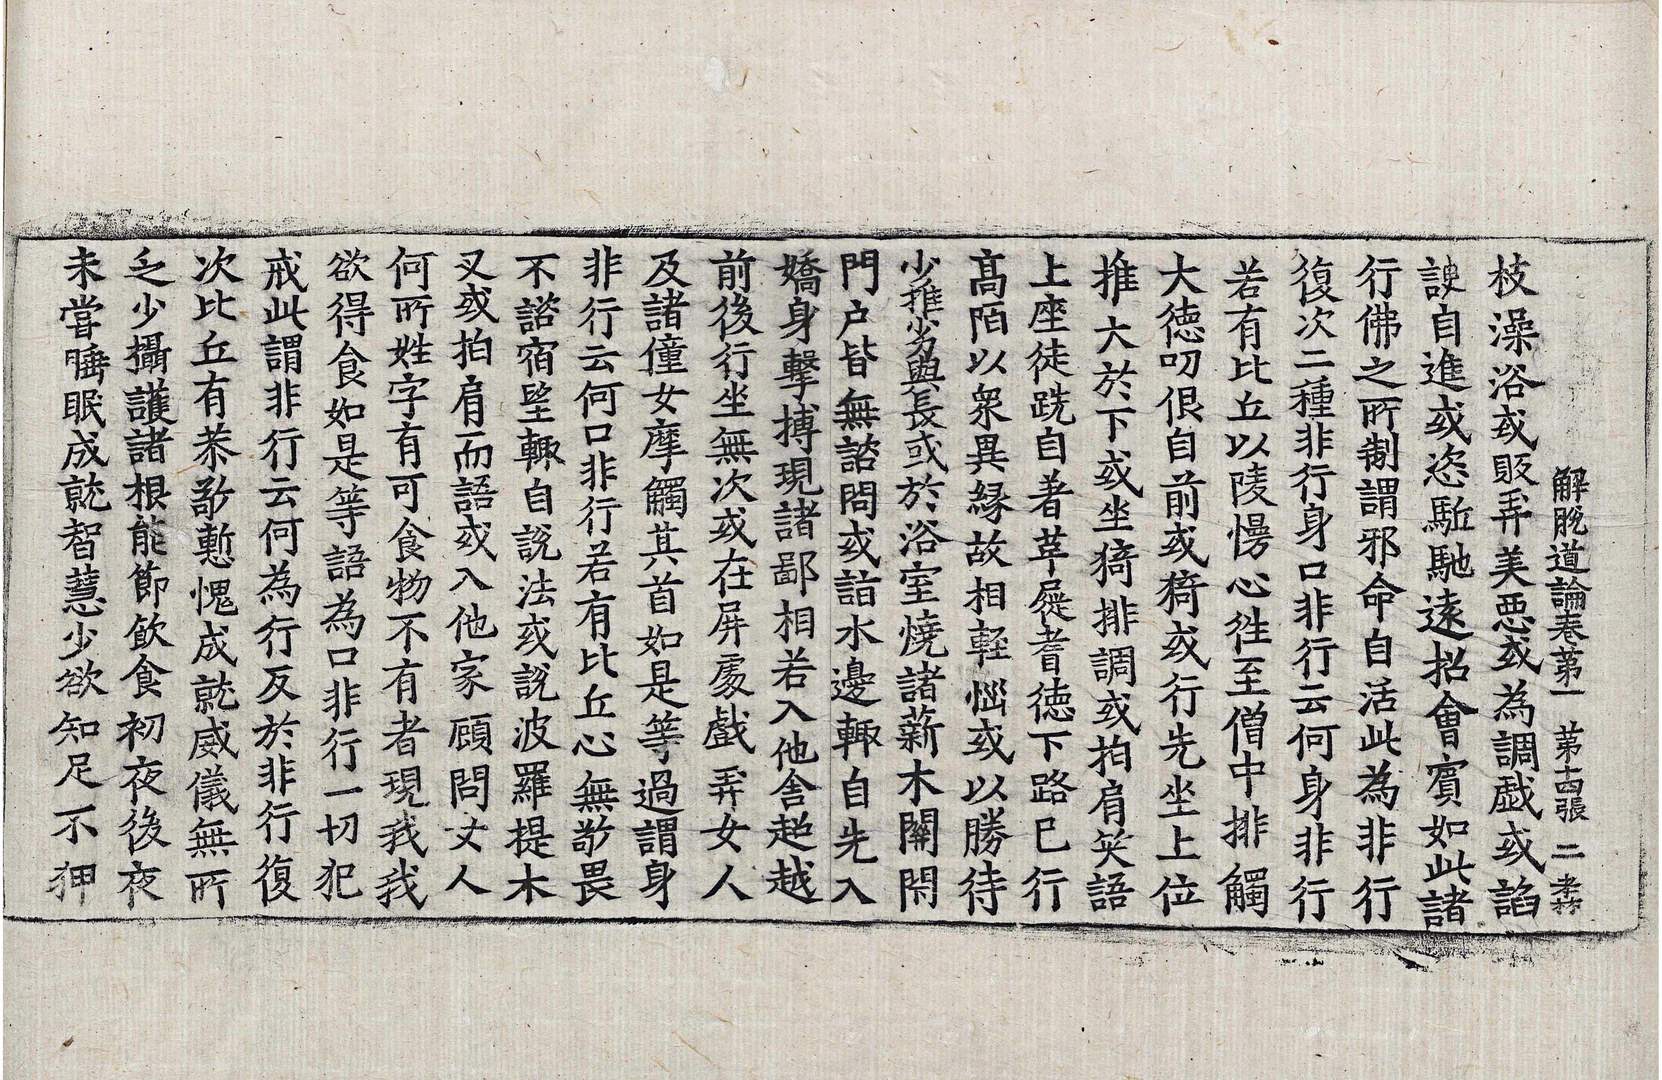 解脫道論卷第一 第十四張 二 孝
枝澡浴或販弄美惡或為調戲或諂
諛自進或恣馳馳遠招會賓如此諸
行佛之所制謂邪命自活此為非行
復次二種非行身口非行云何身非行
若有比丘以陵慢心徃至僧中排觸
大德叨佷自前或猗或行先坐上位
推大於下或坐猗排調或拍肩笑語
上座徒跣自著革屣耆德下路已行
高陌以衆異緣故相輕惱或以勝待
少推劣與長或於浴室燒諸薪木關閇
門户皆無諮問或詣水邊輙自先入
嬌身擊搏現諸鄙相若入他舍超越
前後行坐無次或在屏處戲弄女人
及諸僮女摩觸其首如是等過謂身
非行云何口非行若有比丘心無敬畏
不諮宿望輙自說法或說波羅提木
叉或拍肩而語或入他家顧問女人
何所姓字有可食物不有者現我我
欲得食如是等語為口非行一切犯
戒此謂非行云何為行反於非行復
次比丘有恭敬慙愧成就威儀無所
乏少攝護諸根能節飲食初夜後夜
未嘗睡眠成就智慧少欲知足不狎